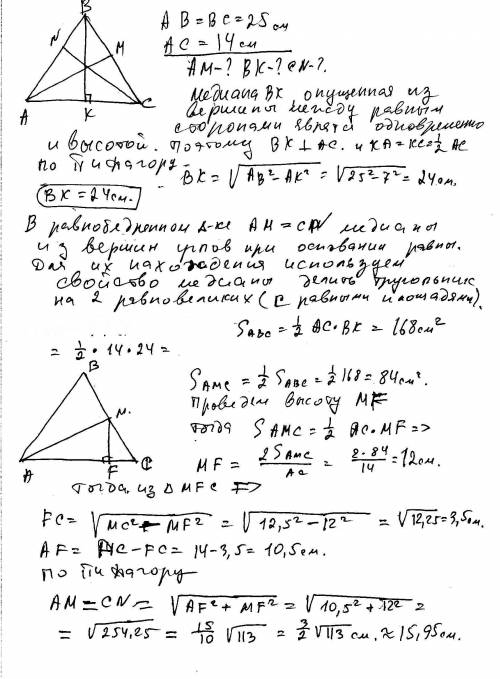 B
N
M
A
K
C
AB = BC = 25 см
AC = 14 см
AM-? BK-? CN-?.
Медиана BK опущенная из
вершины между равным
сторонами является одновременно
и высотой. Поэтому BK ⊥ AC. и KA = KC = 1/2 AC
по Пифагору-
BK = √AB² - AK² = √25² - 7² = 24 см.
BK = 24 см.
В равнобедренном Δ-ке AM = CN медианы
из вершин углов при основании равны.
Для их нахождения используем
свойство медианы делить треугольник
на 2 равновеликих (с равными площадями).
S ABC = 1/2 AC · BK = 168 см²
= 1/2 · 14 · 24 =
B
M.
A
F
C
S AMC = 1/2 S ABC = 1/2 168 = 84 см².
Проведем высоту MF
тогда S AMC = 1/2 AC · MF =>
MF = 2 S AMC / AC = 2·84 / 14 = 12 см.
Тогда из Δ MFC =>
FC = √MC² - MF² = √12,5² - 12² = √12,25 = 3,5 см.
AF = AC - FC = 14 - 3,5 = 10,5 см.
по Пифагору
AM = CN = √AF² + MF² = √10,5² + 12² =
= √254,25 = 15/10 √113 = 3/2 √113 см. ≈ 15,95 см.